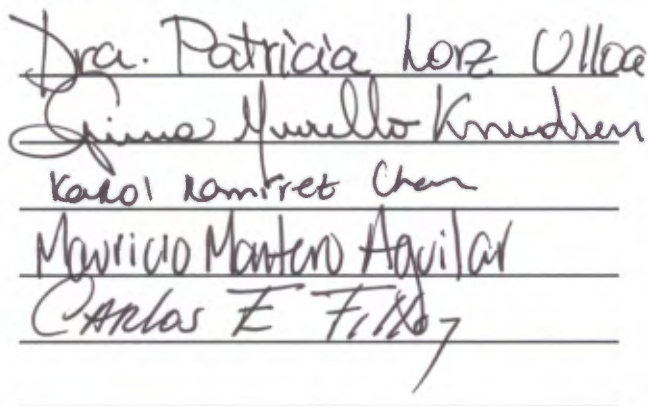 Dra. Patricia Lorz Ulloa
Gina Murillo Knudsen
Karol Ramirez Chan
Mauricio Montero Aguilar
Carlos E